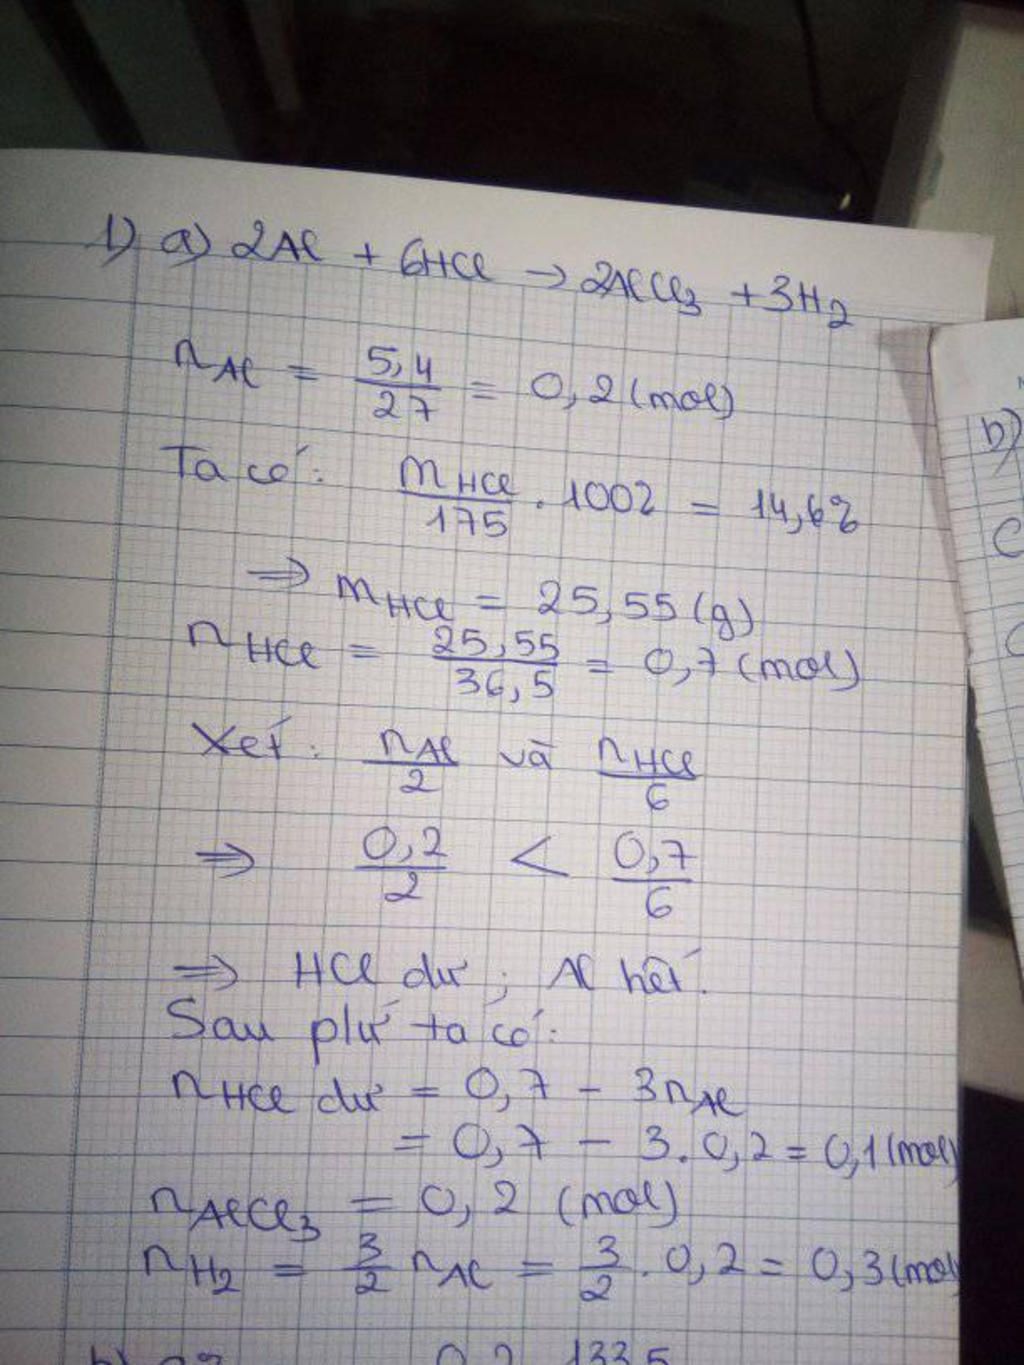 1) a) 2Al + 6HCl → 2AlCl₃ + 3H₂
n_Al = 5,4/27 = 0,2 (mol)
Ta có: m_HCl/175 . 100% = 14,6%
⇒ m_HCl = 25,55 (g)
n_HCl = 25,55/36,5 = 0,7 (mol)
Xét: n_Al/2 và n_HCl/6
⇒ 0,2/2 < 0,7/6
⇒ HCl dư; Al hết.
Sau pứ ta có:
n_HCl dư = 0,7 - 3n_Al
= 0,7 - 3.0,2 = 0,1 (mol)
n_AlCl₃ = 0,2 (mol)
n_H₂ = 3/2 n_Al = 3/2 . 0,2 = 0,3 (mol)
b)